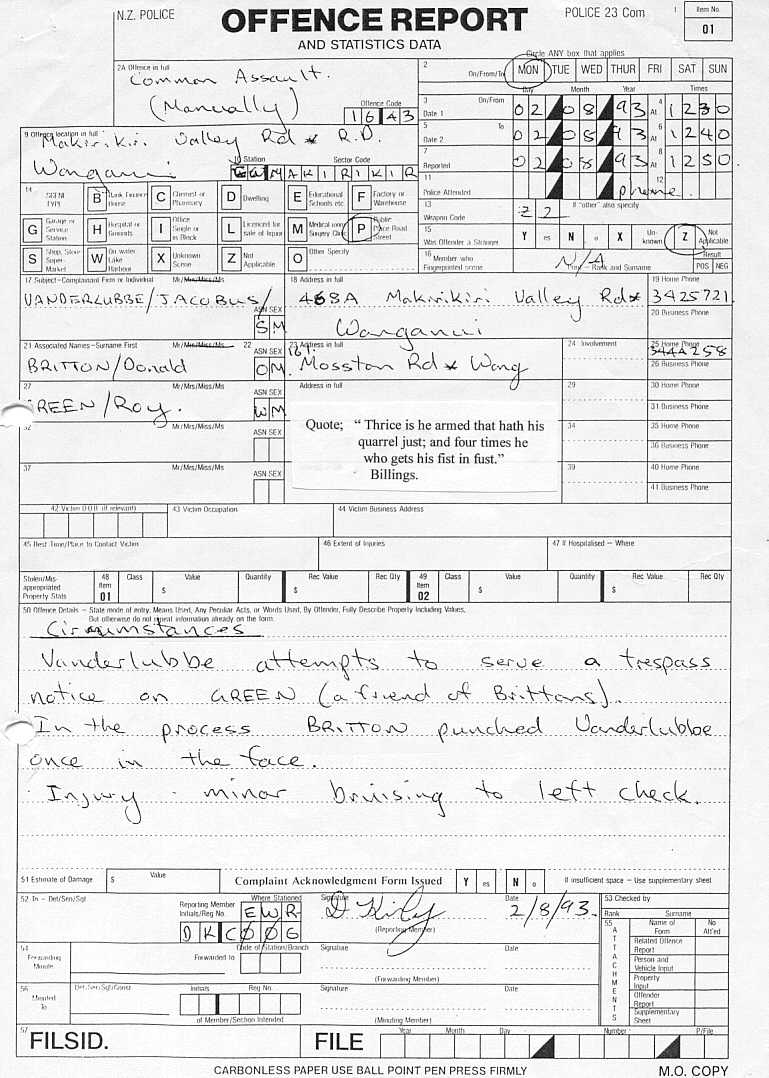 N.Z. POLICE
OFFENCE REPORT
AND STATISTICS DATA
POLICE 23 Com
1
Item No.
01
Circle ANY box that applies
2A Offence in full
Common Assault.
(Manually)
Offence Code
1643
2 On/From/To MON TUE WED THUR FRI SAT SUN
Day Month Year Times
3 On/From
Date 1 02 08 93 At 4 1230
5 To
Date 2 02 08 93 At 6 1240
7
Reported 02 08 93 At 8 1250.
11
Police Attended 12 phone.
9 Offence location in full
Makirikiri Valley Rd * R.D.
Wanganui
10 Station Sector Code
MAKIRIKIR
13
Weapon Code 2 2 If "other" also specify
14 SCENE TYPE
B Bank Finance House
C Chemist or Pharmacy
D Dwelling
E Educational Schools etc.
F Factory or Warehouse
G Garage or Service Station
H Hospital or Grounds
I Office Single or in Block
L Licenced for sale of liquor
M Medical room Surgery Clinic
P Public Place Road Street
S Shop, Store Super-Market
W On water Lake Harbour
X Unknown Scene
Z Not Applicable
O Other Specify
15
Was Offender a Stranger Y es N o X Un-known Z Not Applicable
16 Member who
Fingerprinted scene N/A Rank and Surname
Result
POS NEG
17 Subject-Complainant Firm or Individual Mr/Mrs/Miss/Ms
VANDERLUBBE/JACOBUS/
ASN SEX
S M
18 Address in full
468A Makirikiri Valley Rd*
Wanganui
19 Home Phone
3425721.
20 Business Phone
21 Associated Names-Surname First Mr/Mrs/Miss/Ms
BRITTON/Donald
22 ASN SEX
O M
23 Address in full
161. Mosston Rd * Wang
24 Involvement
25 Home Phone
344A258
26 Business Phone
27 Mr/Mrs/Miss/Ms
GREEN/Roy.
ASN SEX
W M
Address in full
29
30 Home Phone
31 Business Phone
32 Mr/Mrs/Miss/Ms
ASN SEX
34
35 Home Phone
36 Business Phone
37 Mr/Mrs/Miss/Ms
ASN SEX
39
40 Home Phone
41 Business Phone
Quote; " Thrice is he armed that hath his
quarrel just; and four times he
who gets his fist in fust."
Billings.
42 Victim D.O.B (if relevant)
43 Victim Occupation
44 Victim Business Address
45 Best Time/Place to Contact Victim
46 Extent of Injuries
47 If Hospitalised – Where
Stolen/Mis-appropriated Property Stats
48 Item 01 Class Value $ Quantity Rec Value $ Rec Qty
49 Item 02 Class Value $ Quantity Rec Value $ Rec Qty
50 Offence Details – State mode of entry, Means Used, Any Peculiar Acts, or Words Used, By Offender, Fully Describe Property Including Values,
But otherwise do not repeat information already on the form.
Circumstances
Vanderlubbe attempts to serve a trespass
notice on GREEN (a friend of Brittons).
In the process BRITTON punched Vanderlubbe
once in the face.
Injury - minor bruising to left check.
51 Estimate of Damage $ Value
Complaint Acknowledgment Form Issued Y es N o
If insufficient space – Use supplementary sheet
52 In – Det/Sen/Sgt
Reporting Member
Initials/Reg No.
Where Stationed
EWR
DKC006
Signature
D Kirby
(Reporting Member)
Date
2/8/93.
53 Checked by
Rank Surname
54
Forwarding Minute
Forwarded to
Code of Station/Branch
Signature
(Forwarding Member)
Date
55
ATTACHMENTS
Name of Form No Att'ed
Related Offence Report
Person and Vehicle Input
Property Input
Offender Report
Supplementary Sheet
56
Minuted To
Det/Sen/Sgt/Const
Initials Reg No.
of Member/Section Intended
Signature
(Minuting Member)
Date
57
FILSID.
FILE
Year Month Day Number P/File
CARBONLESS PAPER USE BALL POINT PEN PRESS FIRMLY
M.O. COPY